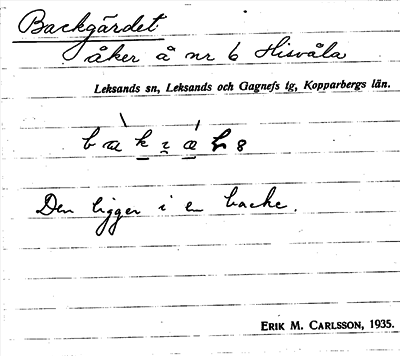 Backgärdet
åker å nr 6 Hisvåla
Leksands sn, Leksands och Gagnefs tg, Kopparbergs län.
Den ligger i en backe.
ERIK M. CARLSSON, 1935.